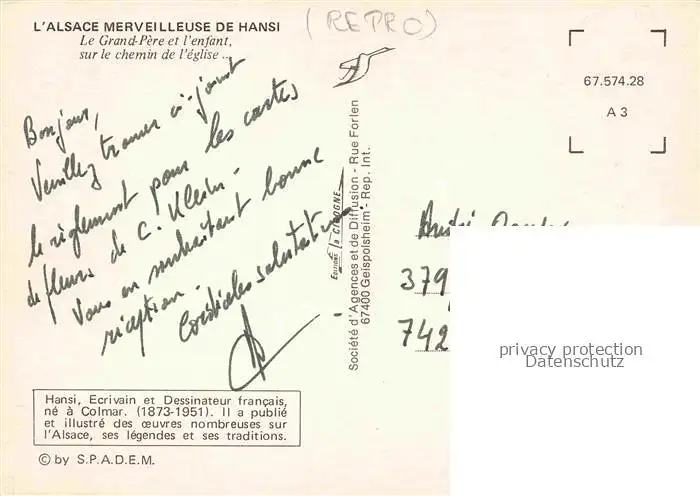 L'ALSACE MERVEILLEUSE DE HANSI
Le Grand-Père et l'enfant,
sur le chemin de l'église ...
(REPRO)
67.574.28
A 3
Bonjour,
Veuillez trouver ci-joint
le règlement pour les cartes
de fleurs de C. Klein.
Vous en souhaitant bonne
réception.
Cordiales salutations.
Editions la CIGOGNE
Société d'Agences et de Diffusion - Rue Forlen
67400 Geispolsheim - Rep. Int.
André
379
742
privacy protection
Datenschutz
Hansi, Ecrivain et Dessinateur français,
né à Colmar. (1873-1951). Il a publié
et illustré des œuvres nombreuses sur
l'Alsace, ses légendes et ses traditions.
© by S.P.A.D.E.M.